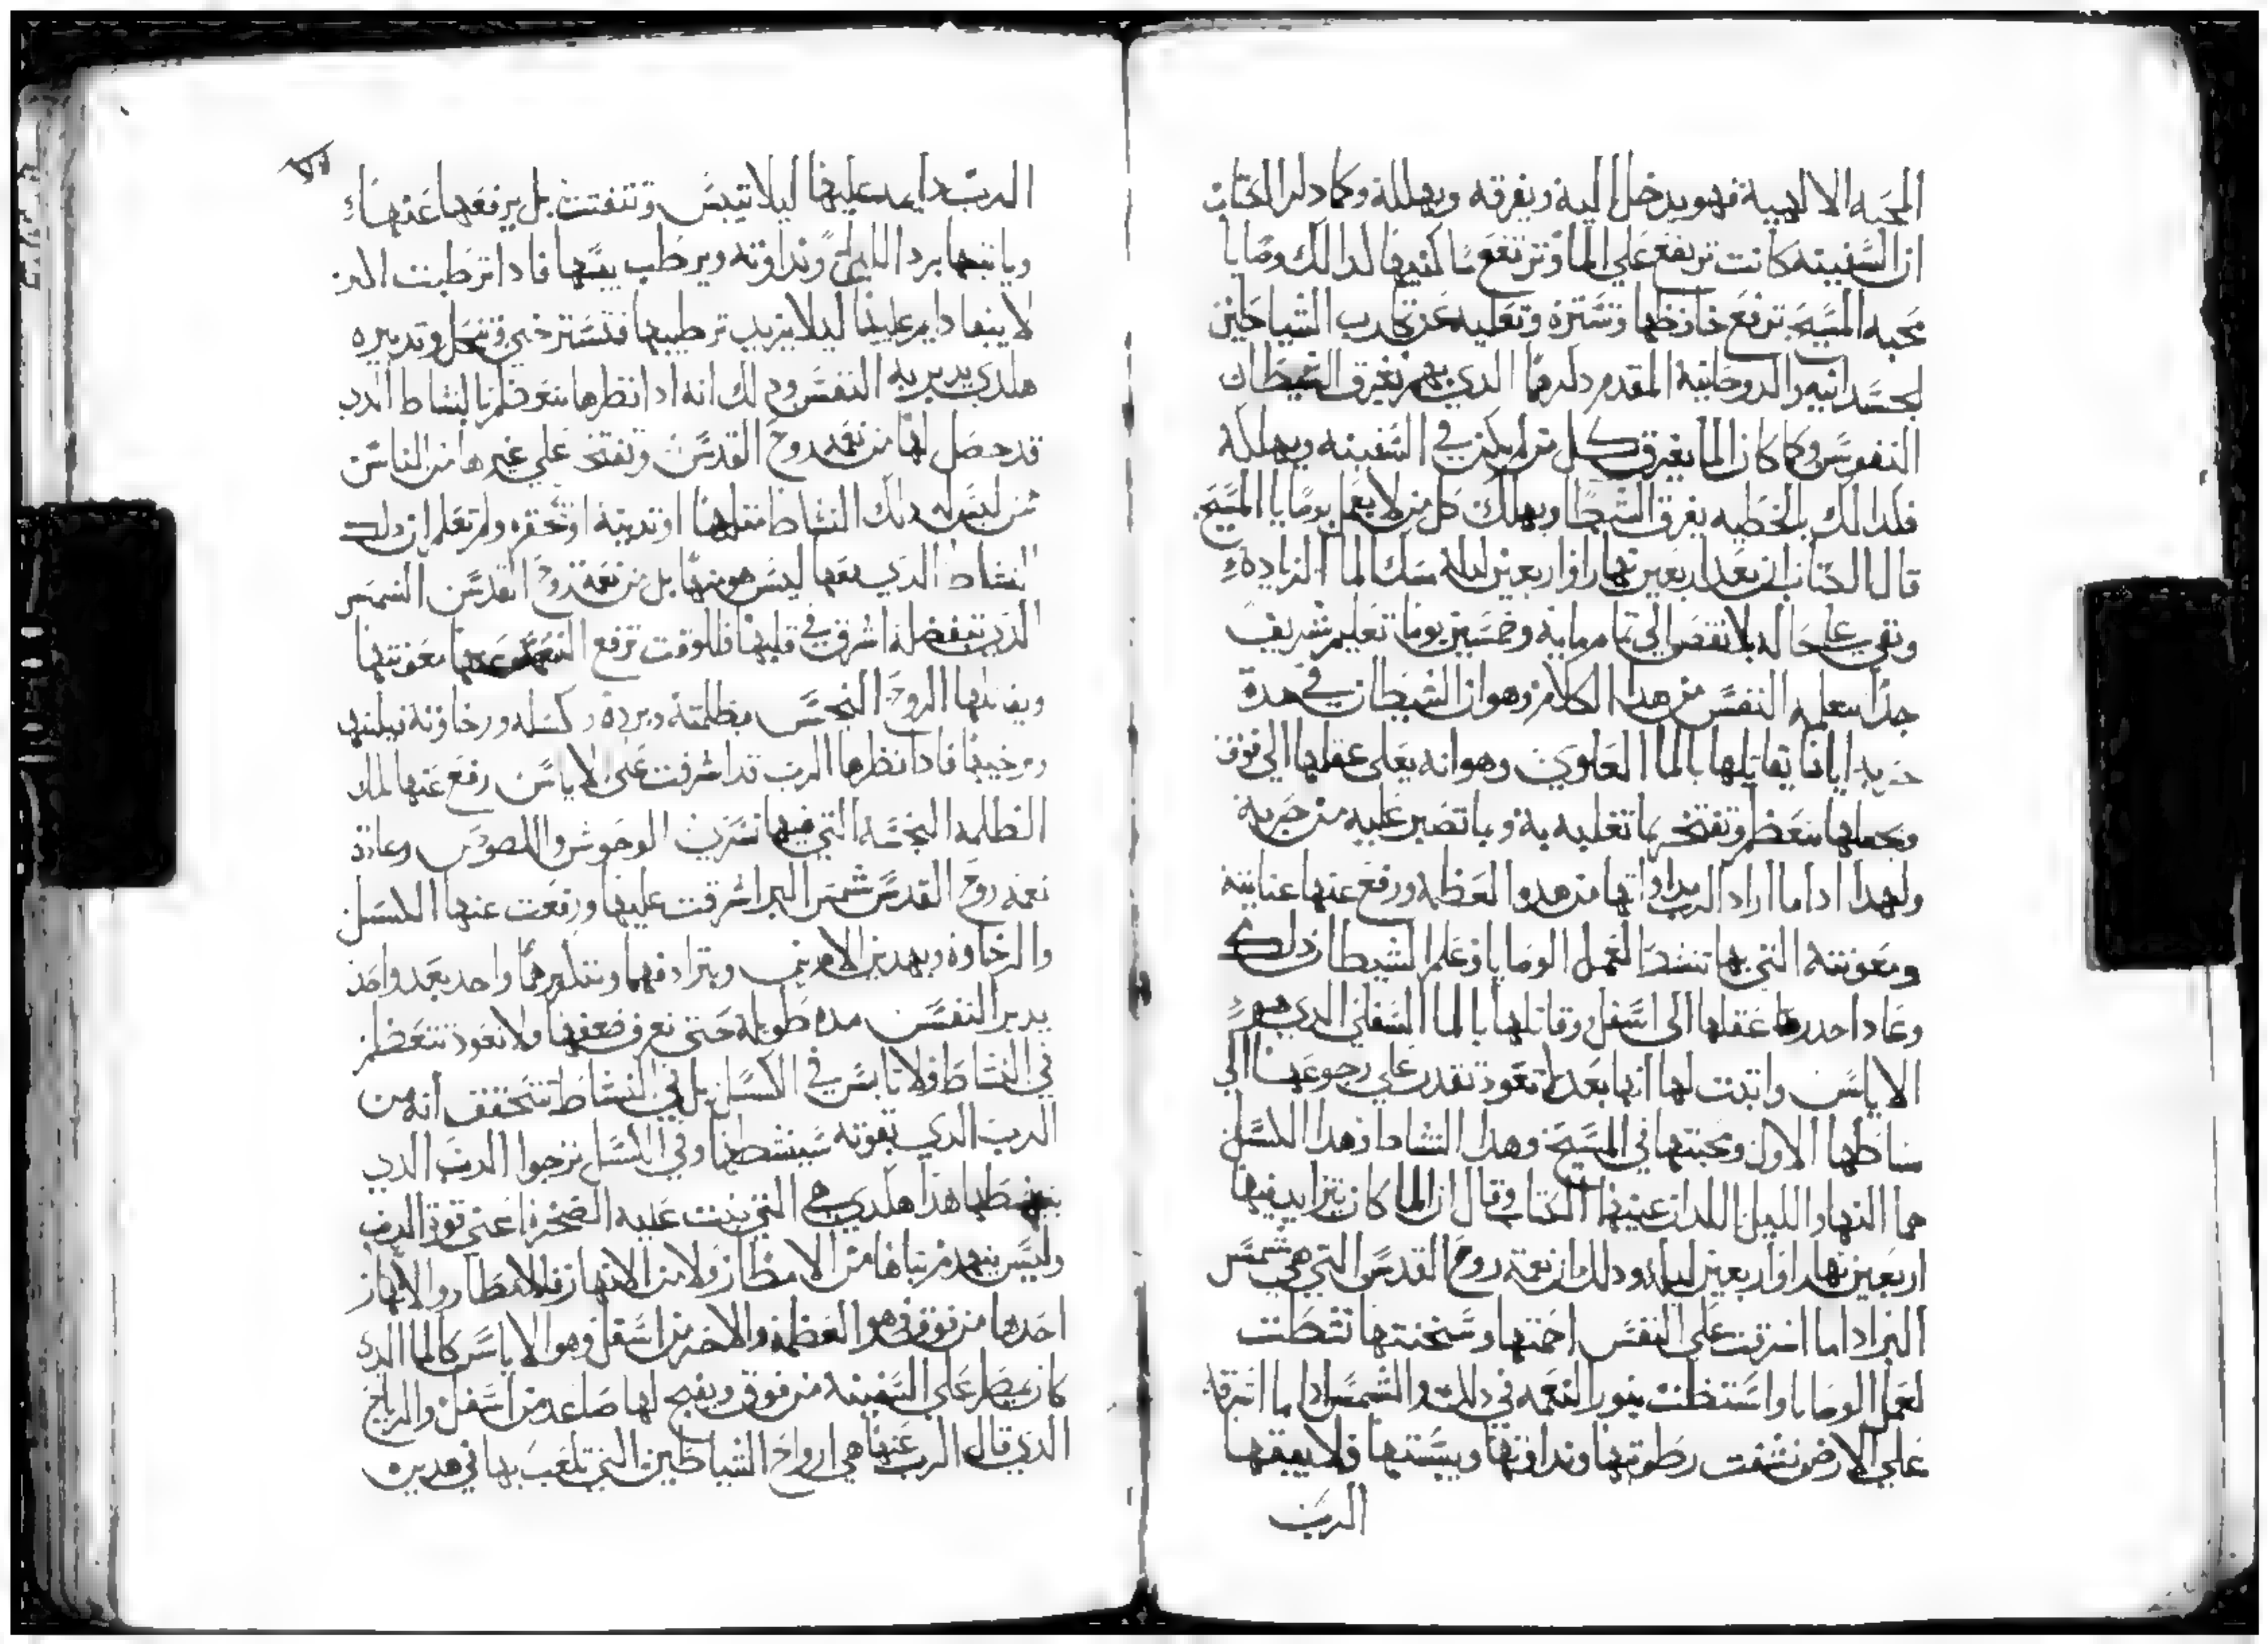 المحبه الالهيية فهو يدخل اليه ويغرقه ويهلله وكما دلر الكتاب
ان السفينه كانت ترتفع علي الما وترتفع بما فيها لدالك وصايا
محبه المسيح ترفع حافظها وتستره وتعليه عن تجارب الشياطين
الجسدانيه والروحانية المقدم دلرهما الدي بهم يغرق الشيطان
النفوس وكما كان الما يغرق كل من لم يكن في السفينه ويهلكه
فلدالك بالخطيه يغرق الشيطان ويهلك كل من لا يعمل بوصايا المسيح
قال الكتاب ان بعد اربعين نهارا واربعين ليلة سك الما الزياده
وبقي علي حاله بلا نقص الي تمام ماية وخمسين يوما تعليم شريف
جدا تتعلمه النفس من هدا الكلام وهو ان الشيطان في هدة
يقاتلها بالما العلوي وهو انه يعلي عقلها الي فوق
ويجعلها تتعظم وتفتخر بما تغلبه به وبما تصبر عليه من حربه
ولهدا اداما اراد الرب من هدو العظمه ورفع عنها عنايته
ومعونته التي بها تنشط لعمل الوصايا وعلم الشيطان دلك
وعاد احدر عقلها الي اسفل وقاتلها بالما السفلي الدي هو
الاياس واتبت لها انها بعد لم تعود تقدر علي رجوعها الي
نشاطها الاول ومحبتها في المسيح وهدا النشاط وهدا الكسل
هما النهار والليل اللدان عنيها الكتاب وقال ان الما كان يتزايد فيها
اربعين نهارا واربعين ليله ودلك ان نعمة روح القدس التي هي شمس
البر اداما اشرقت علي النفس احمتها وسخنتها نشطت
لعمل الوصايا واستيقظت بنور النعمه في دلك والشمس اداما اشرقت
علي الارض نشفت رطوبتها ونداوتها ويبستها فلا يبقيها
الرب
الرب دايم عليها ليلا تيبس وتتفتت بل يرفعها عنها
وياتيها برد الليل ونداوته ويرطب يبسها فادا ترطبت
لا يبقا دايم عليها ليلا يزيد ترطيبها فتسترخي وتنحل وتدبيره
هلدي يدبر به النفس ودلك انه ادا نظرها تتعظم بالنشاط الدي
قد حصل لها من نعمه روح القدس وتفتخر علي غيرها من الناس
من ليس له دلك النشاط مثلها او تدينة او تحقره ولم تعلم ان دلك
النشاط الدي معها ليس هو منها بل من نعمة روح القدس الشمس
الدي بتفضله اشرق في قلبها فللوقت ترفع النعمه عنها معونتها
ويقاتلها الروح النجس بظلمته وبرده وكسله ورخاوته فيبلدها
ويرخيها فادا نظرها الرب قد اشرفت علي الاياس رفع عنها تلك
الظلمه النجسه التي فيها تسرق الوحوش واللصوص وعادة
نعمه روح القدس شمس البر اشرقت عليها ورفعت عنها الكسل
والرخاوه وبهدين الامرين وبترادفهما وتكريرهما واحد بعد واحد
يدبر النفس مده طويلة حتي تعرف ضعفها ولا تعود تتعظم
في النشاط ولا تايس في الكسل بل في النشاط تتحقق انه من
الرب الدي بقوته سينشطها وفي الكسل ترجوا الرب الدي
ينشطها هدا هلدي هي التي بنيت علية الصخرة اعني قوة الرب
وليس ينهدم بناها من الامطار ولا من الانهار فالامطار والانهار
احدها من فوق وهو العظمه والاخر من اسفل وهو الاياس كالما الدي
كان يمطر علي السفينه من فوق وينبع لها صاعد من اسفل والرياح
الدي قال الرب عنها هي ارواح الشياطين التي تلعب بها في هدين